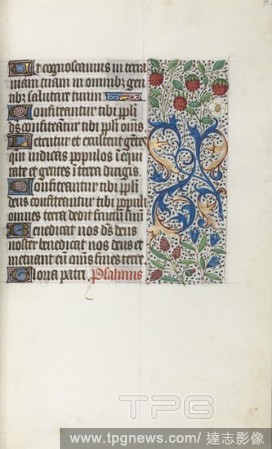 Ut cognoscamus in terra
viam tuam in omnibz gen
tibz salutare tuum
Confiteantur tibi ppli
ds confiteātur tibi ppli om̄s
Letentur et exultent gētes
qm̄ iudicas populos ī equi
tate et gentes ī terra dirigis
Confiteantur tibi ppli
deus confiteantur tibi populi
omnes terra dedit fructū suū
Benedicat nos ds̄ deus
noster benedicat nos deus et
metuant eū om̄s fines terre
Gloria patri Psalmus
TPG
www.tpgnews.com/ 達志影像